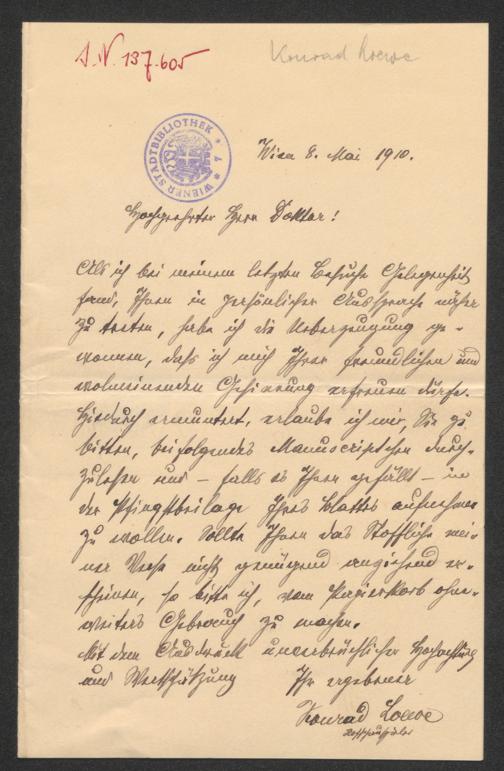 J. N. 137.605
Konrad Loewe
WIENER STADTBIBLIOTHEK
Wien 8. Mai 1910.
Hochgeehrter Herr Doktor!
Als ich bei meinem letzten Besuche Gelegenheit
fand, Ihnen in persönlicher Aussprache näher
zu treten, habe ich die Ueberzeugung ge-
wonnen, dass ich mich Ihrer freundlichen und
wolmeinenden Gesinnung erfreuen dürfe.
Hiedurch ermuntert, erlaube ich mir, Sie zu
bitten, beifolgendes Manuscriptchen durch-
zulesen und – falls es Ihnen gefällt – in
der Pfingstbeilage Ihres Blattes aufnehmen
zu wollen. Sollte Ihnen das Stoffliche mei-
ner Verse nicht genügend anziehend er-
scheinen, so bitte ich, vom Papierkorb ohne-
weiters Gebrauch zu machen.
Mit dem Ausdruck unverbrüchlicher Hochachtung
und Wertschätzung Ihr ergebener
Konrad Loewe
Hofschauspieler